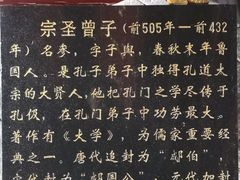 宗圣曾子(前505年—前432
年)名参,字子舆,春秋末年鲁
国人。是孔子弟子中独得孔道太
宗的大贤人,他把孔门之学尽传于
孔伋,在孔门弟子中功劳最大。
著作有《大学》,为儒家重要经
典之一。唐代追封为“郕伯”,
宋代封为“郕国公”,元代加封